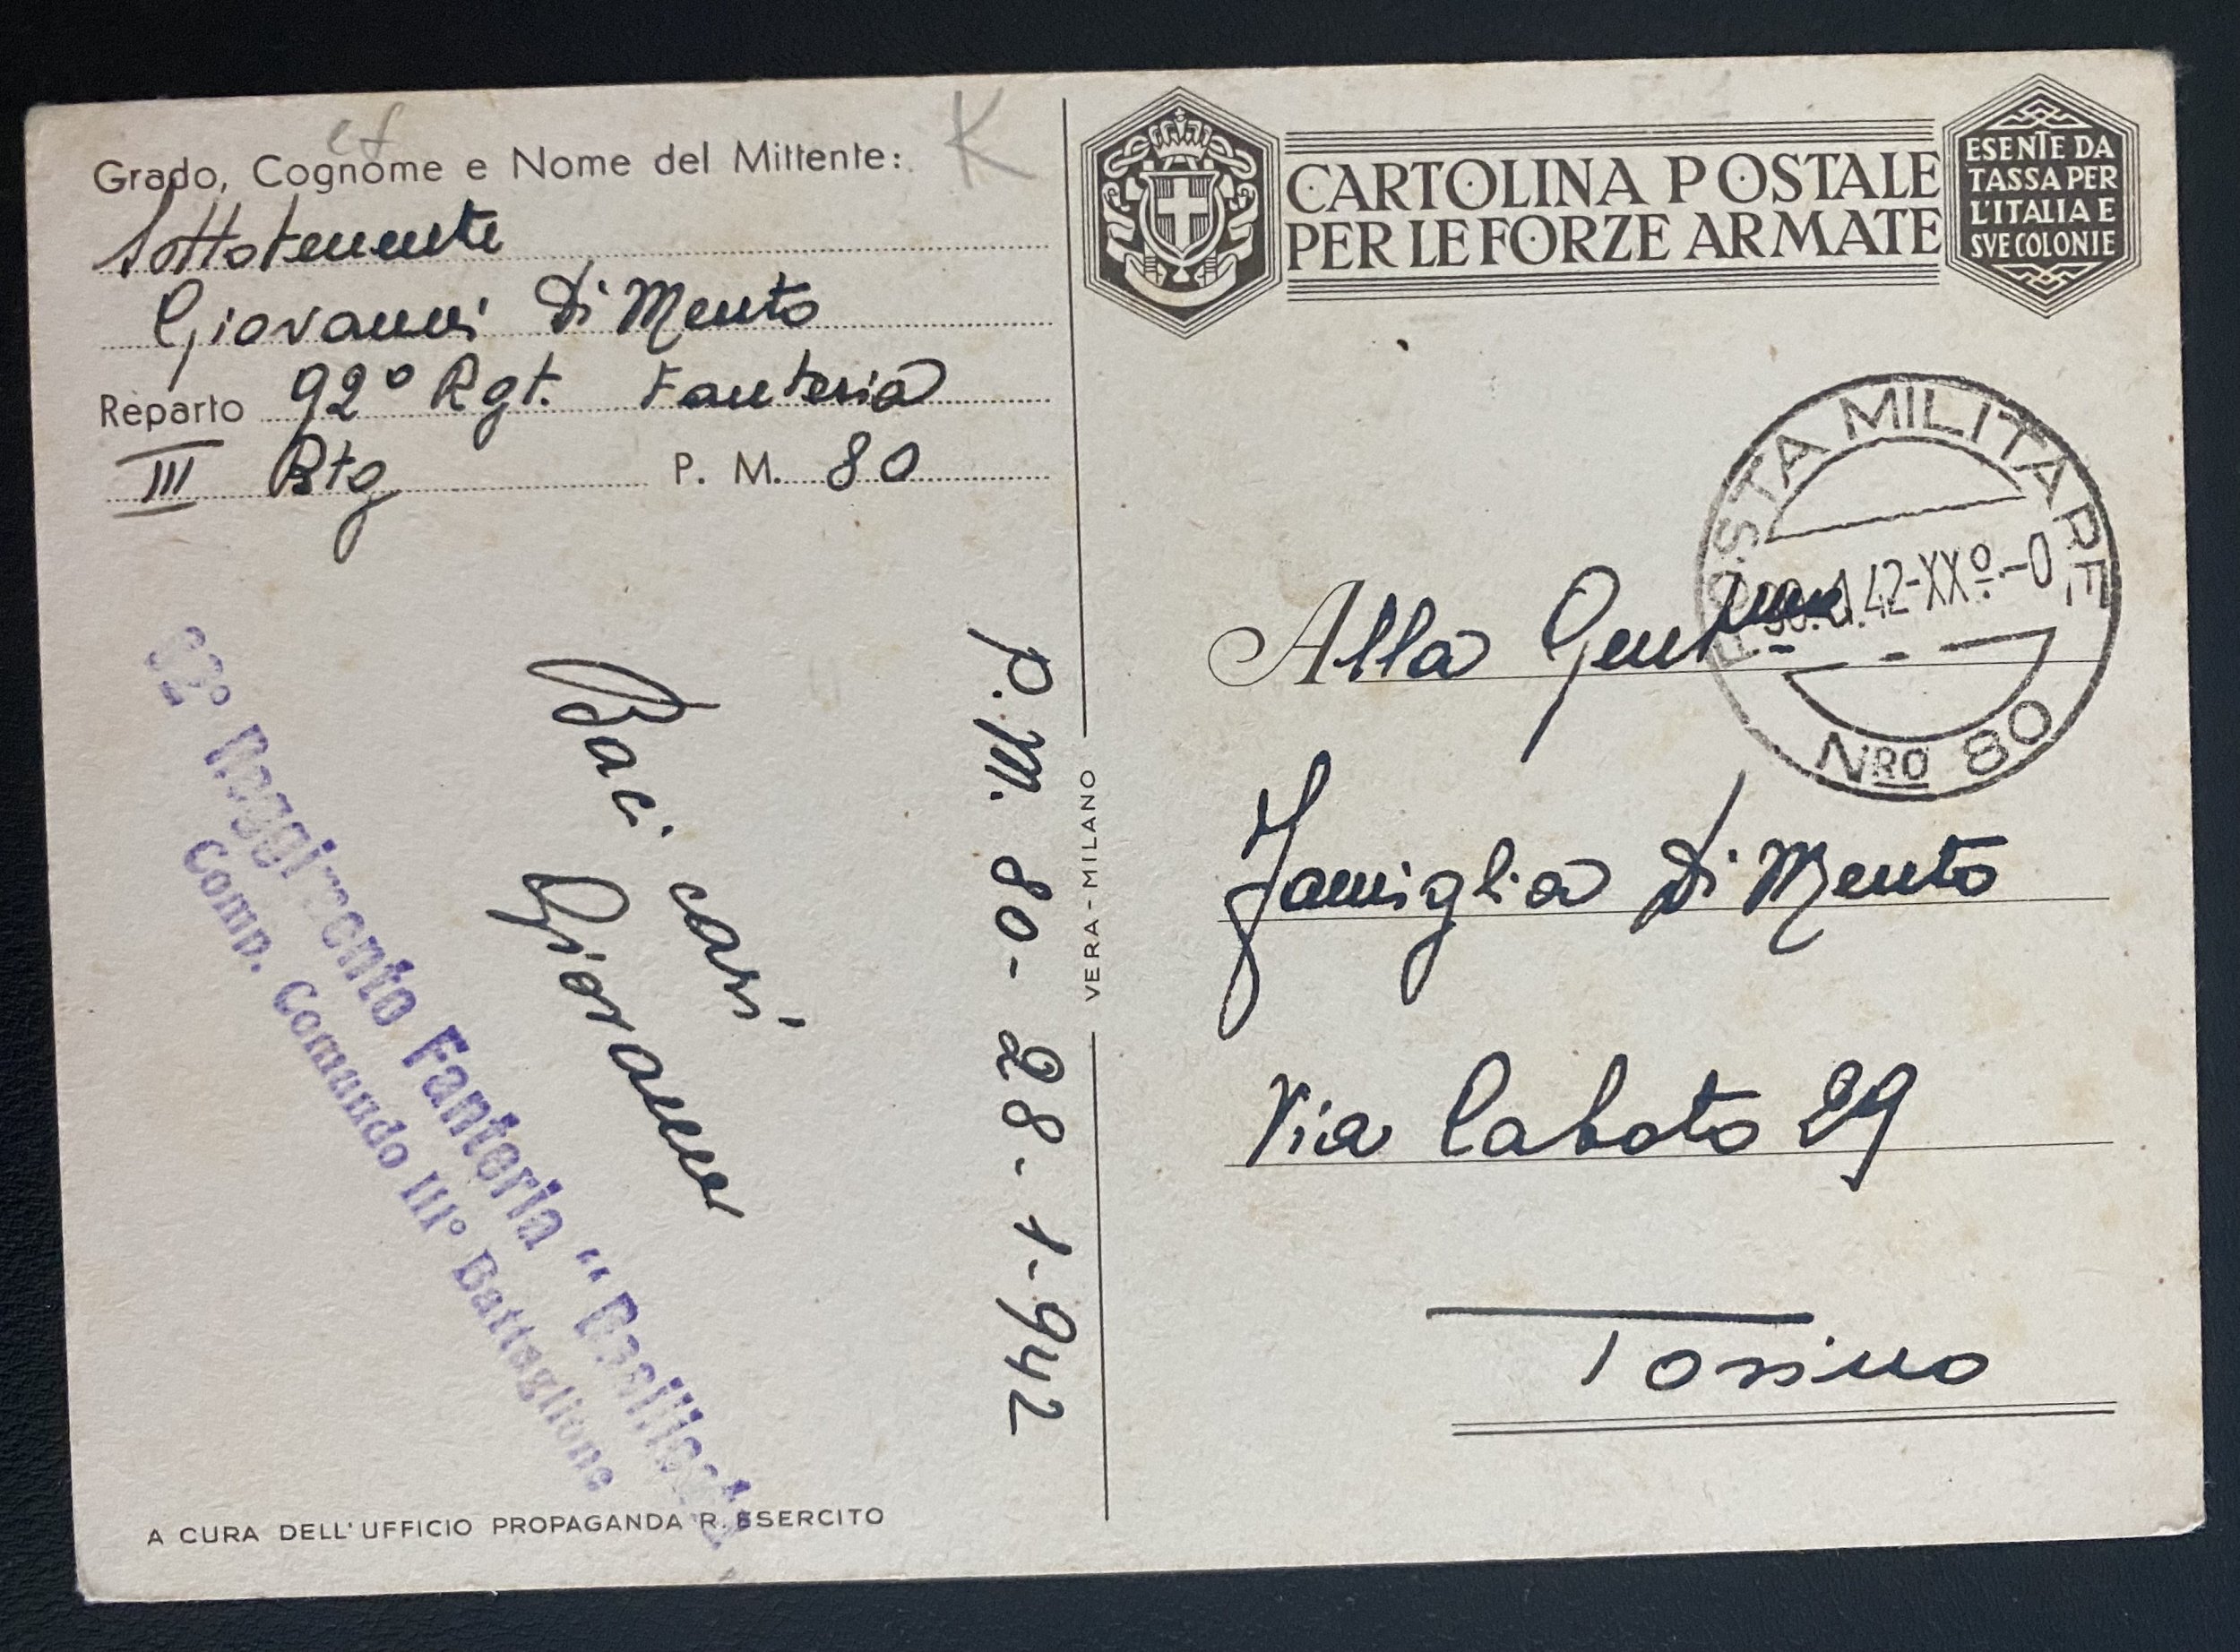 K
Grado, Cognome e Nome del Mittente:
Sottotenente
Giovanni Di Mento
Reparto 92º Rgt. Fanteria
III Btg P. M. 80
P.M. 80- 28-1-942
Baci cari
Giovanni
92° Reggimento Fanteria "Basilicata"
Comp. Comando III° Battaglione
A CURA DELL'UFFICIO PROPAGANDA R. ESERCITO
VERA - MILANO
CARTOLINA POSTALE
PER LE FORZE ARMATE
ESENTE DA
TASSA PER
L'ITALIA E
SVE COLONIE
POSTA MILITARE
.42-XXº.-0
NRO 80
Alla Gent.ma
Famiglia Di Mento
Via Caboto 29
Torino